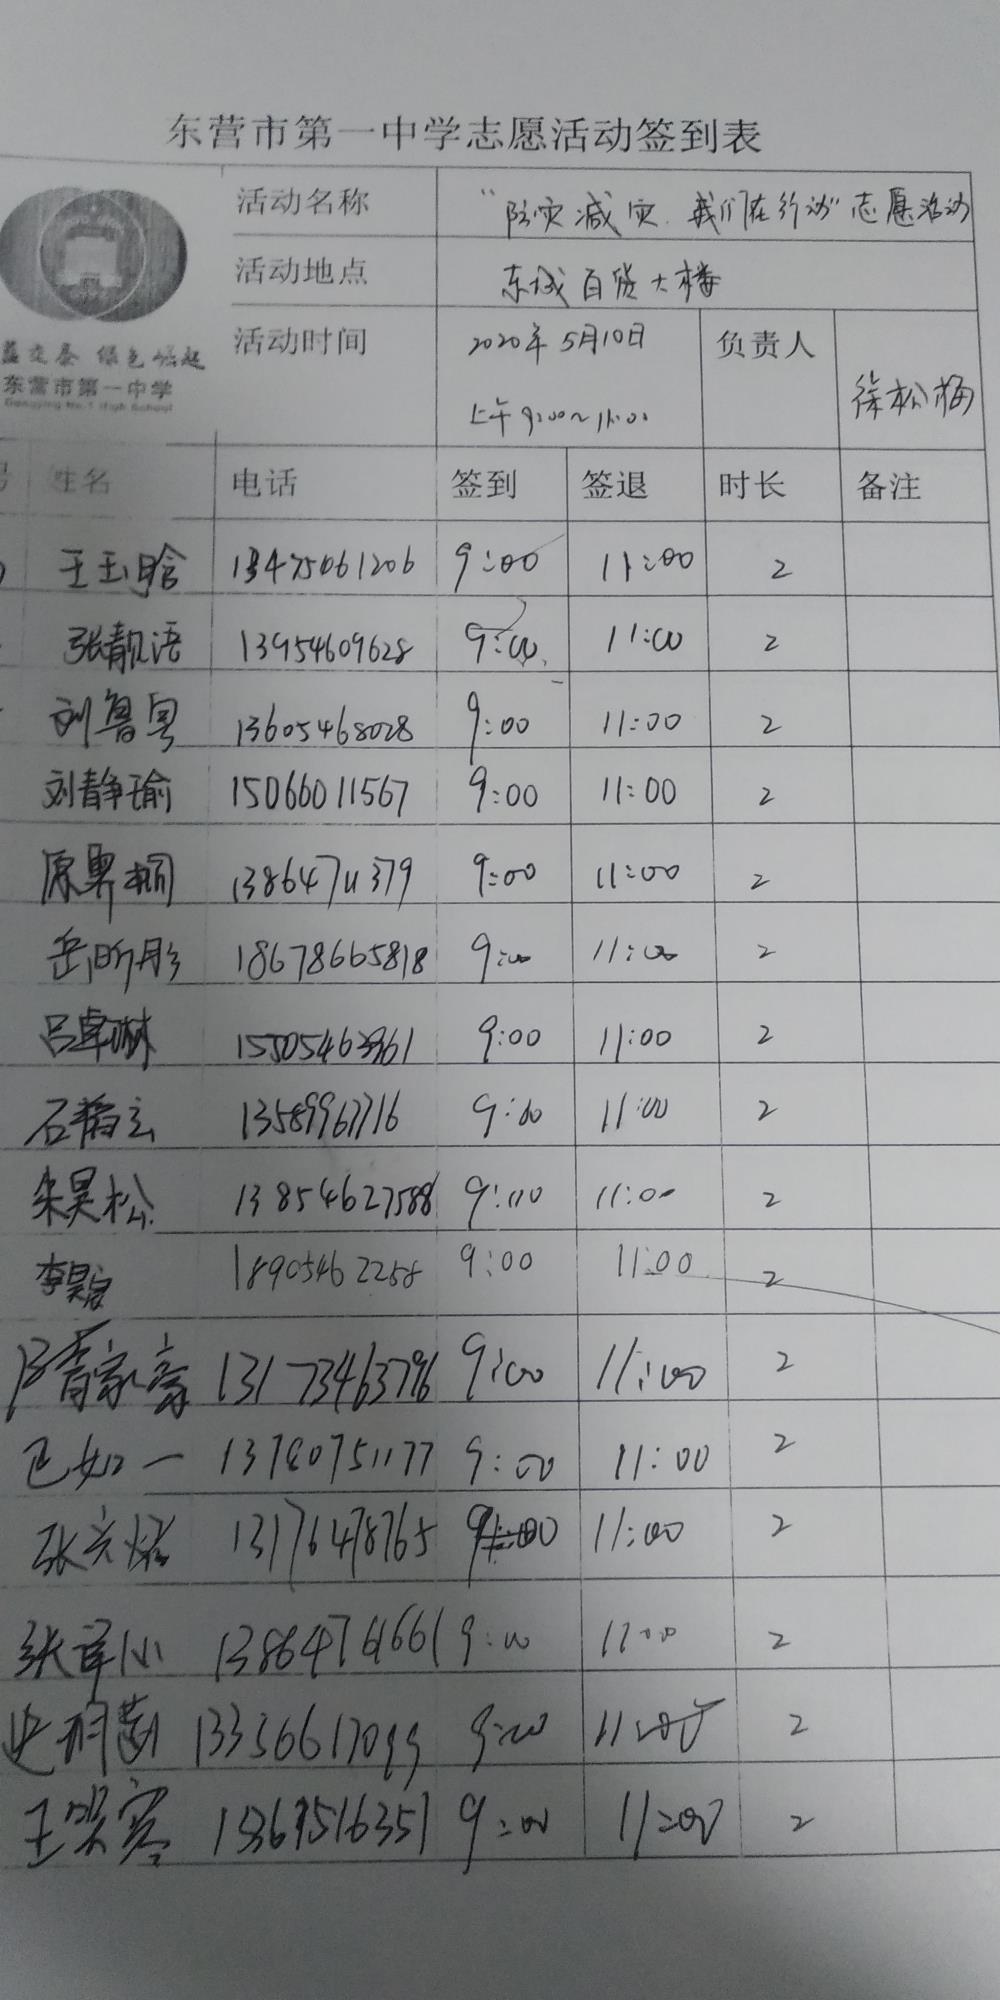 东营市第一中学志愿活动签到表
活动名称 "防灾减灾.我们在行动"志愿活动
活动地点 东城百货大楼
活动时间 2020年5月10日 负责人 徐松梅
上午9:00~11:00
绿色崛起
东营市第一中学
Dongying No.1 High School
姓名 电话 签到 签退 时长 备注
王玉晗 13475061206 9:00 11:00 2
张靓语 13954609628 9:00 11:00 2
刘鲁粤 13605468028 9:00 11:00 2
刘静瑜 15066011567 9:00 11:00 2
原果桐 13864711379 9:00 11:00 2
岳昕彤 18678665818 9:00 11:00 2
吕卓琳 9:00 11:00 2
石 13589967716 9:00 11:00 2
朱昊松 13854627588 9:00 11:00 2
李昊宸 18905462258 9:00 11:00 2
家豪 13173463796 9:00 11:00 2
巴如一 13780751177 9:00 11:00 2
张 13176478765 9:00 11:00 2
张 9:00 11:00 2
13356617099 9:00 11:00 2
王 9:00 11:00 2